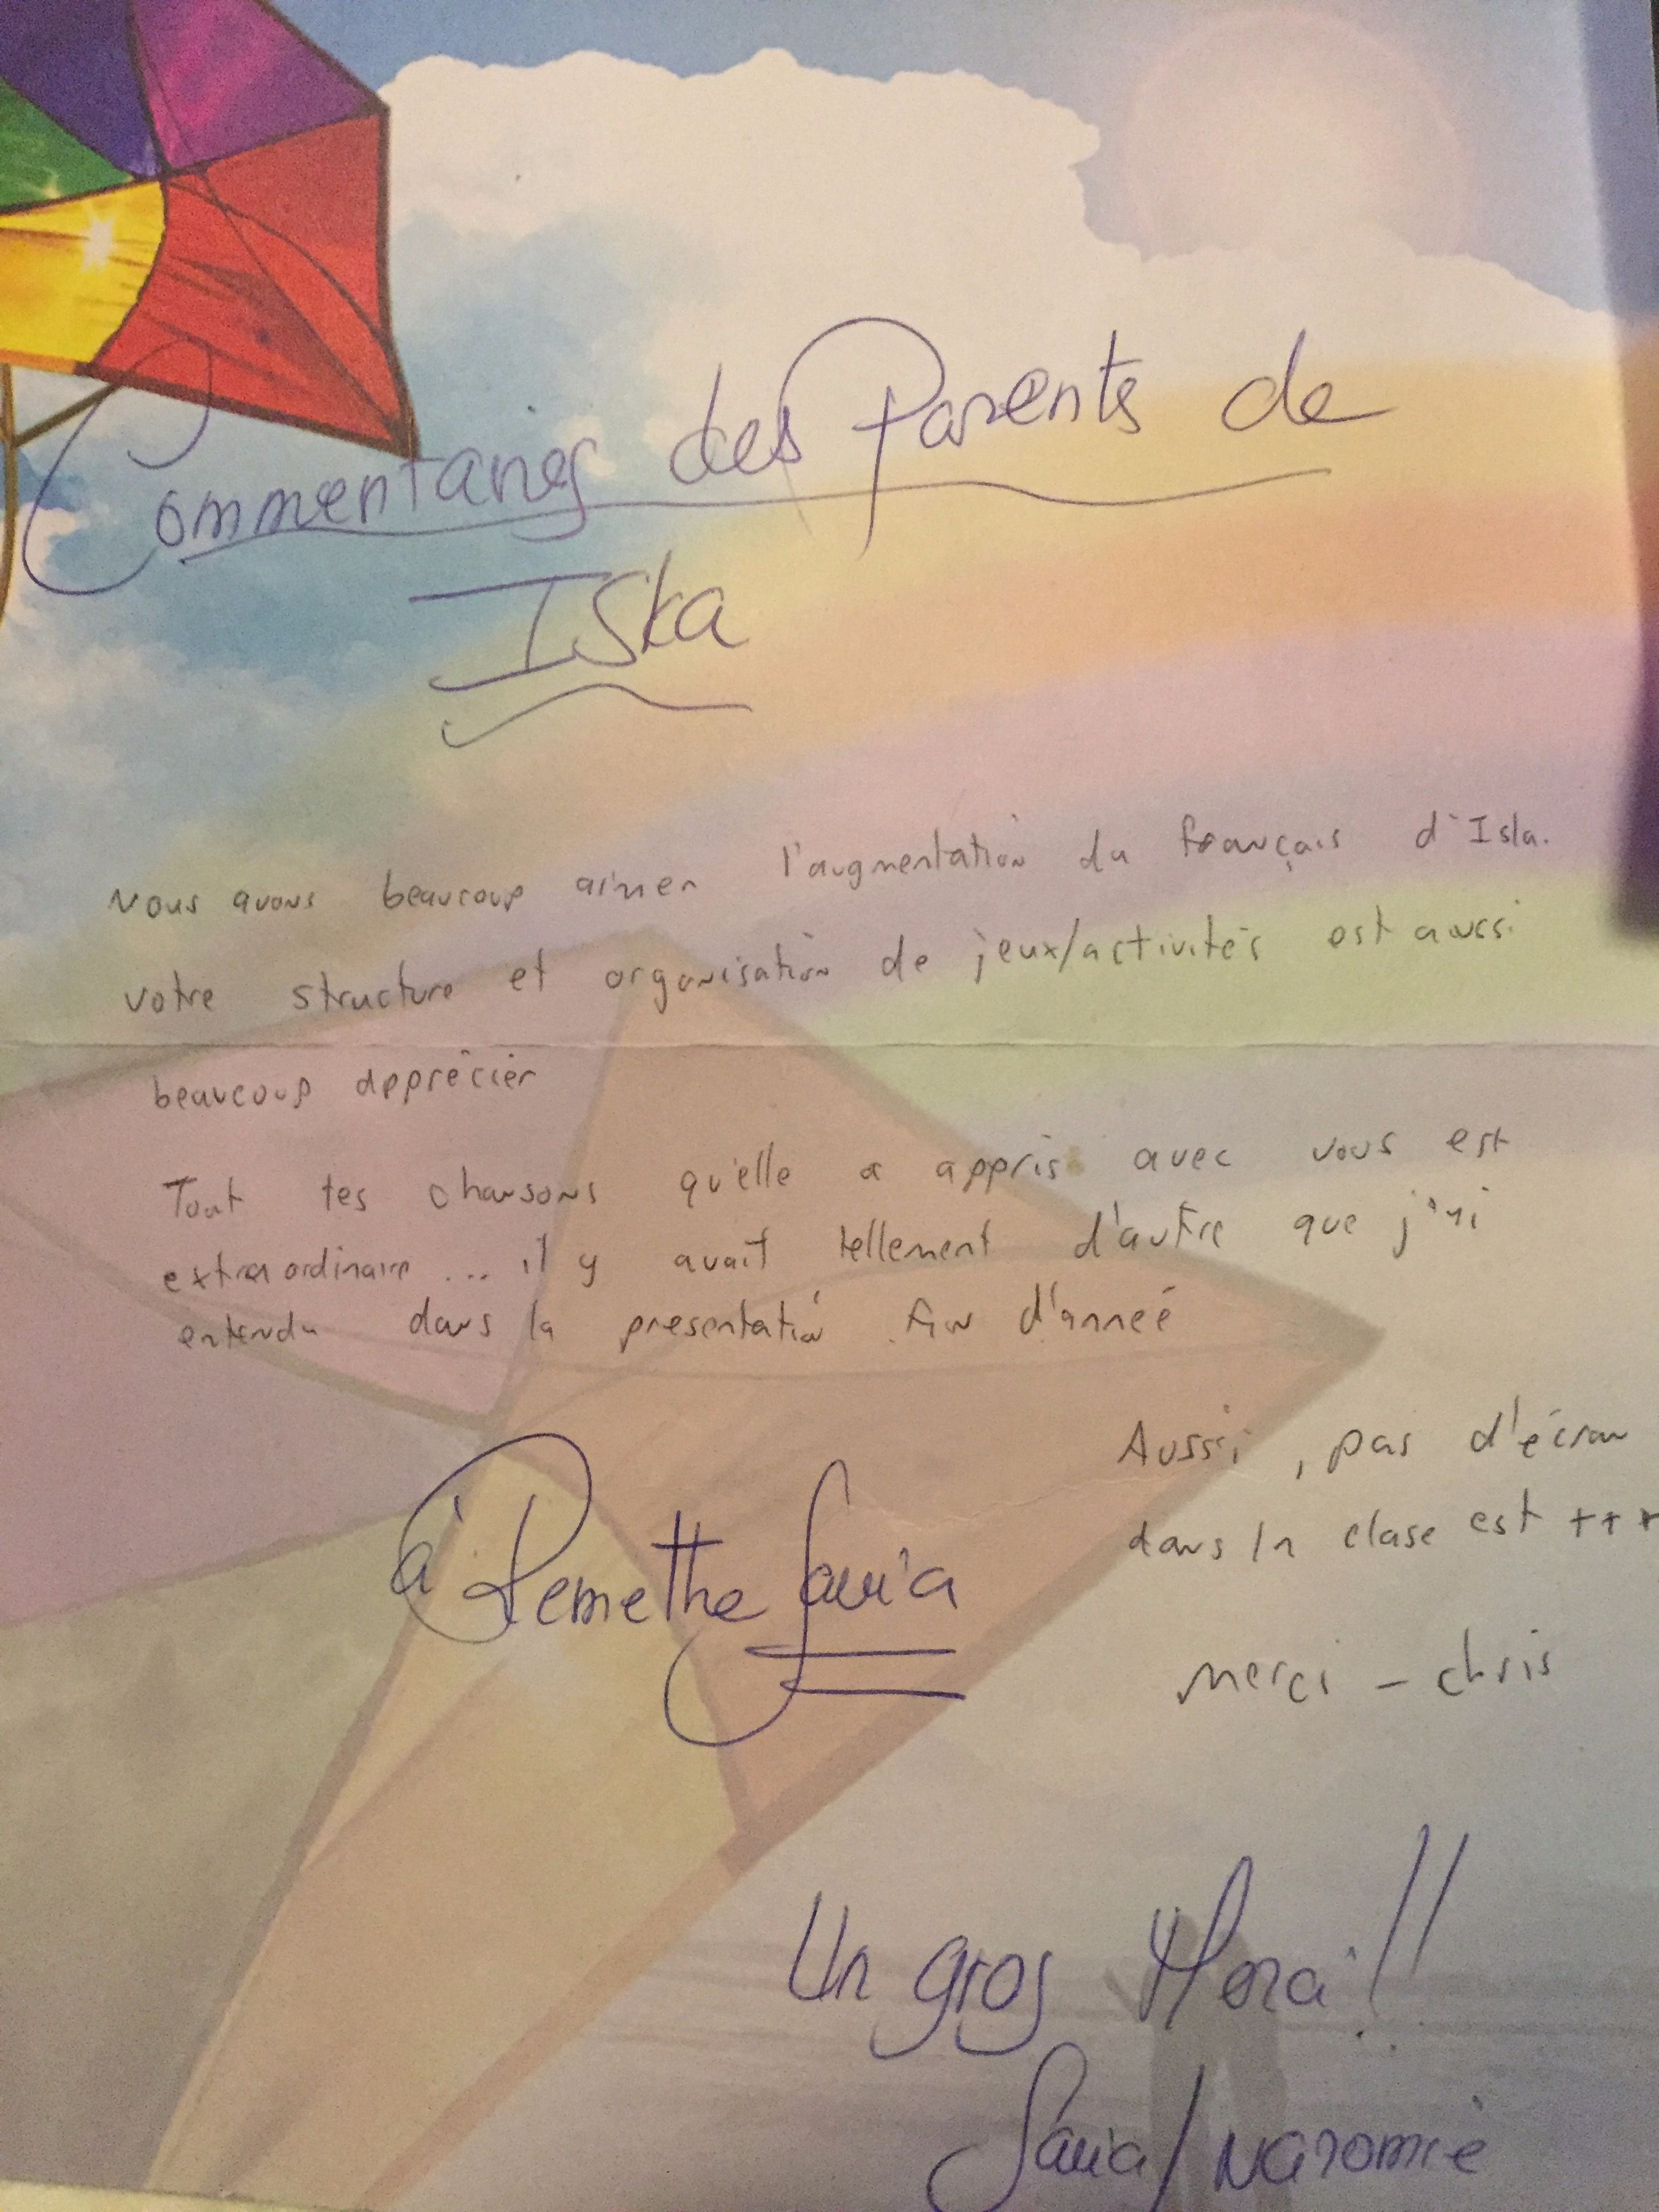 Commentaires des Parents de
Iska
Nous avons beaucoup aimer l'augmentation du français d'Isla.
votre structure et organisation de jeux/activités est aussi
beaucoup apprécier
Tout les chansons qu'elle a appris avec vous est
extraordinaire ... il y avait tellement d'autre que j'ai
entendu dans la presentation fin d'anneé
Aussi, pas d'écran
dans la clase est +++
à Remettre
merci - chris
Un gros Merci!!
/ Naromie